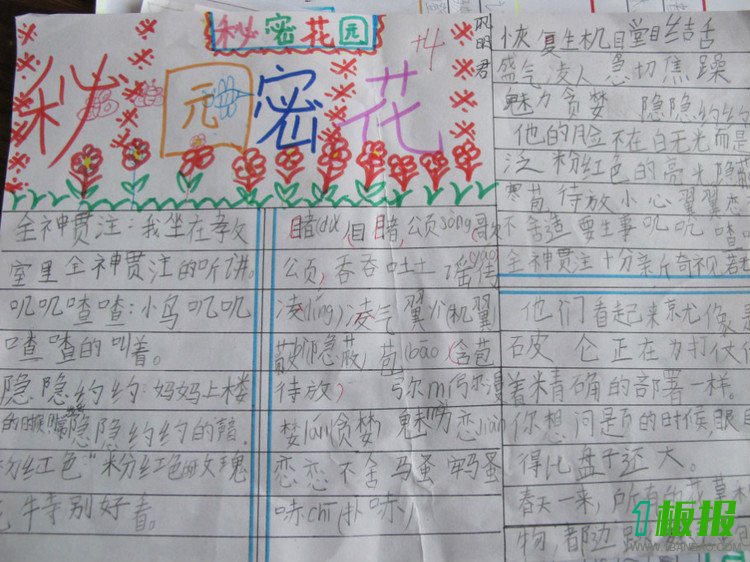 秘密花园
秘密花
园
#4
巩明君
全神贯注:我坐在教
室里全神贯注的听讲。
叽叽喳喳:小鸟叽叽
喳喳的叫着。
隐隐约约:妈妈上楼
的时候隐隐约约的
粉红色"粉红色的玫瑰
花特别好看。
睹(dǔ)目睹,颂sòng歌
颂,吞吞吐土 瑶
凌(líng)凌气 翼 机翼
蔽 隐蔽,苞(bāo)(含苞
待放) 弥mí弥漫
婪lán贪婪 魅 力恋liàn
恋恋不舍 蚂蚂蚤
哧chī(扑哧)
恢复生机目瞪口呆结舌
盛气凌人 急切焦躁
魅力贪婪 隐隐约约
他的脸不在白无光而是
泛粉红色的亮光隐
苞待放小心翼翼恋
不舍造要生事叽叽喳
全神贯注十分新奇视若
他们看起来就像
石皮 仑正在为打仗
着精确的部署一样。
你想问是的时候,眼
得比盘子还大。
春天一来,所有的花草
物,都边
板报
WWW.1BANBAO.COM